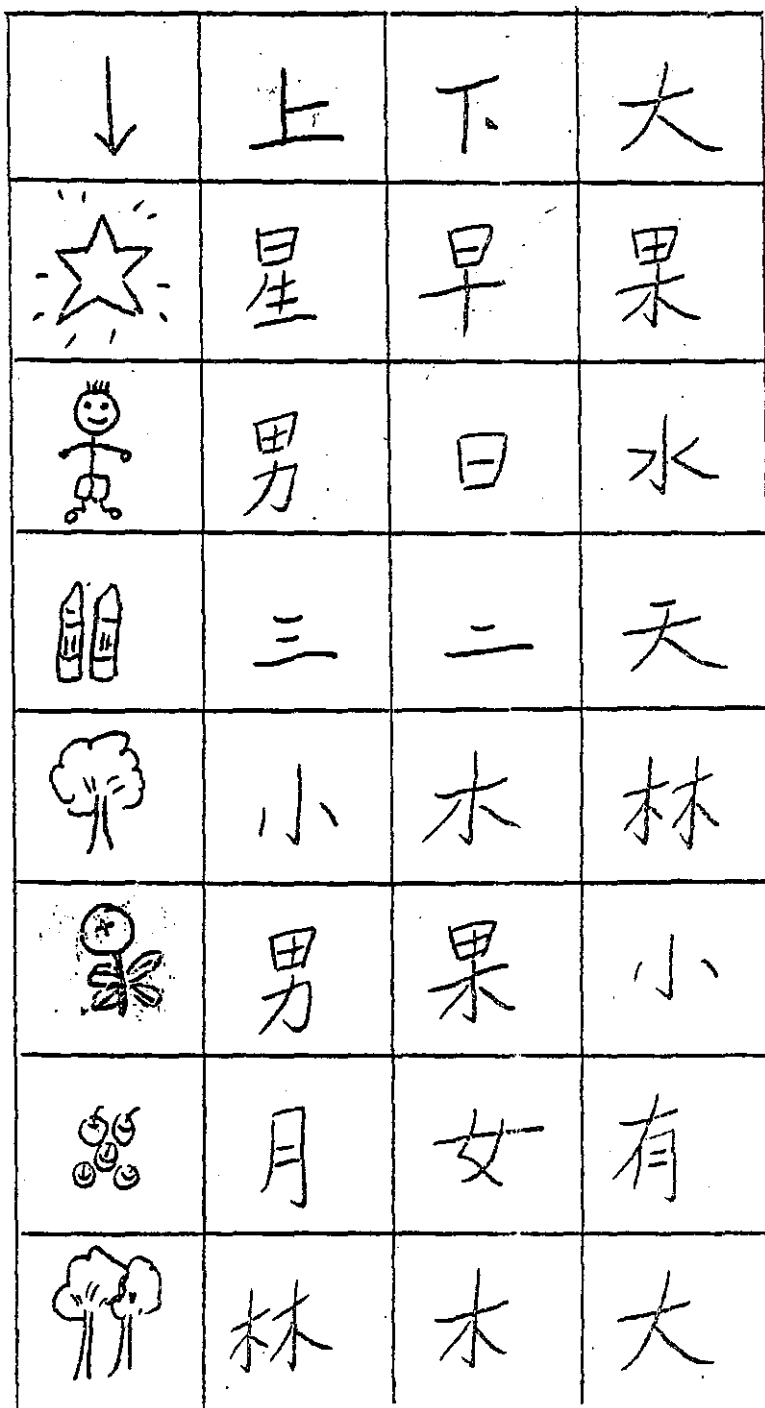 上 下 大
星 早 果
男 日 水
三 二 天
小 木 林
男 果 小
月 女 有
林 木 大